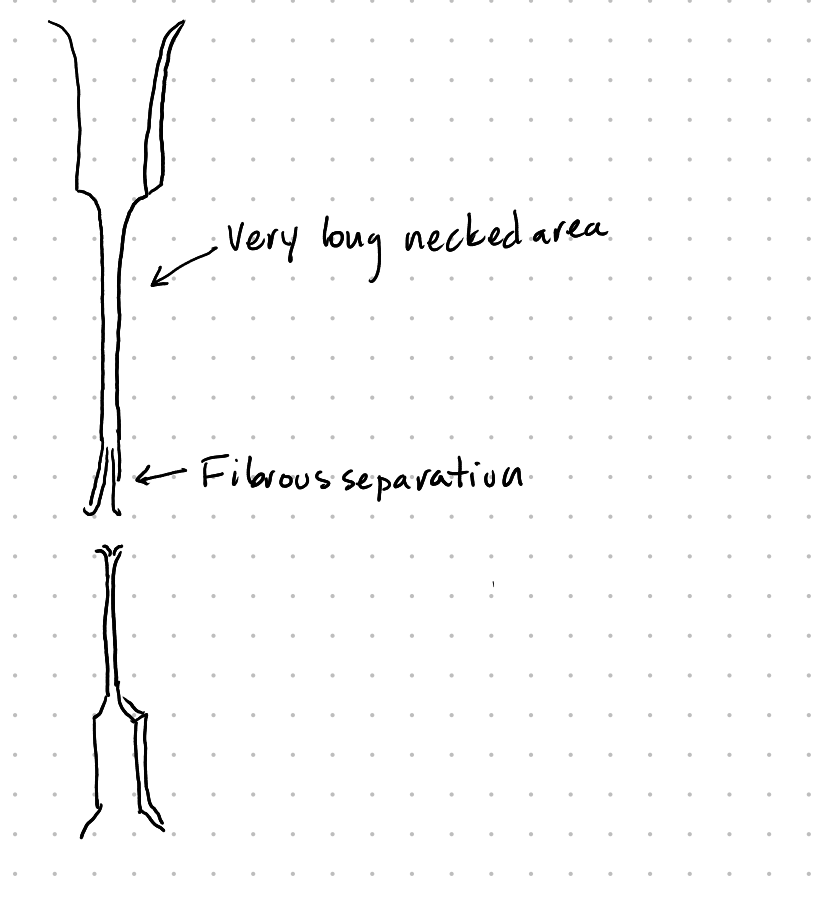 Very long necked area
Fibrous separation